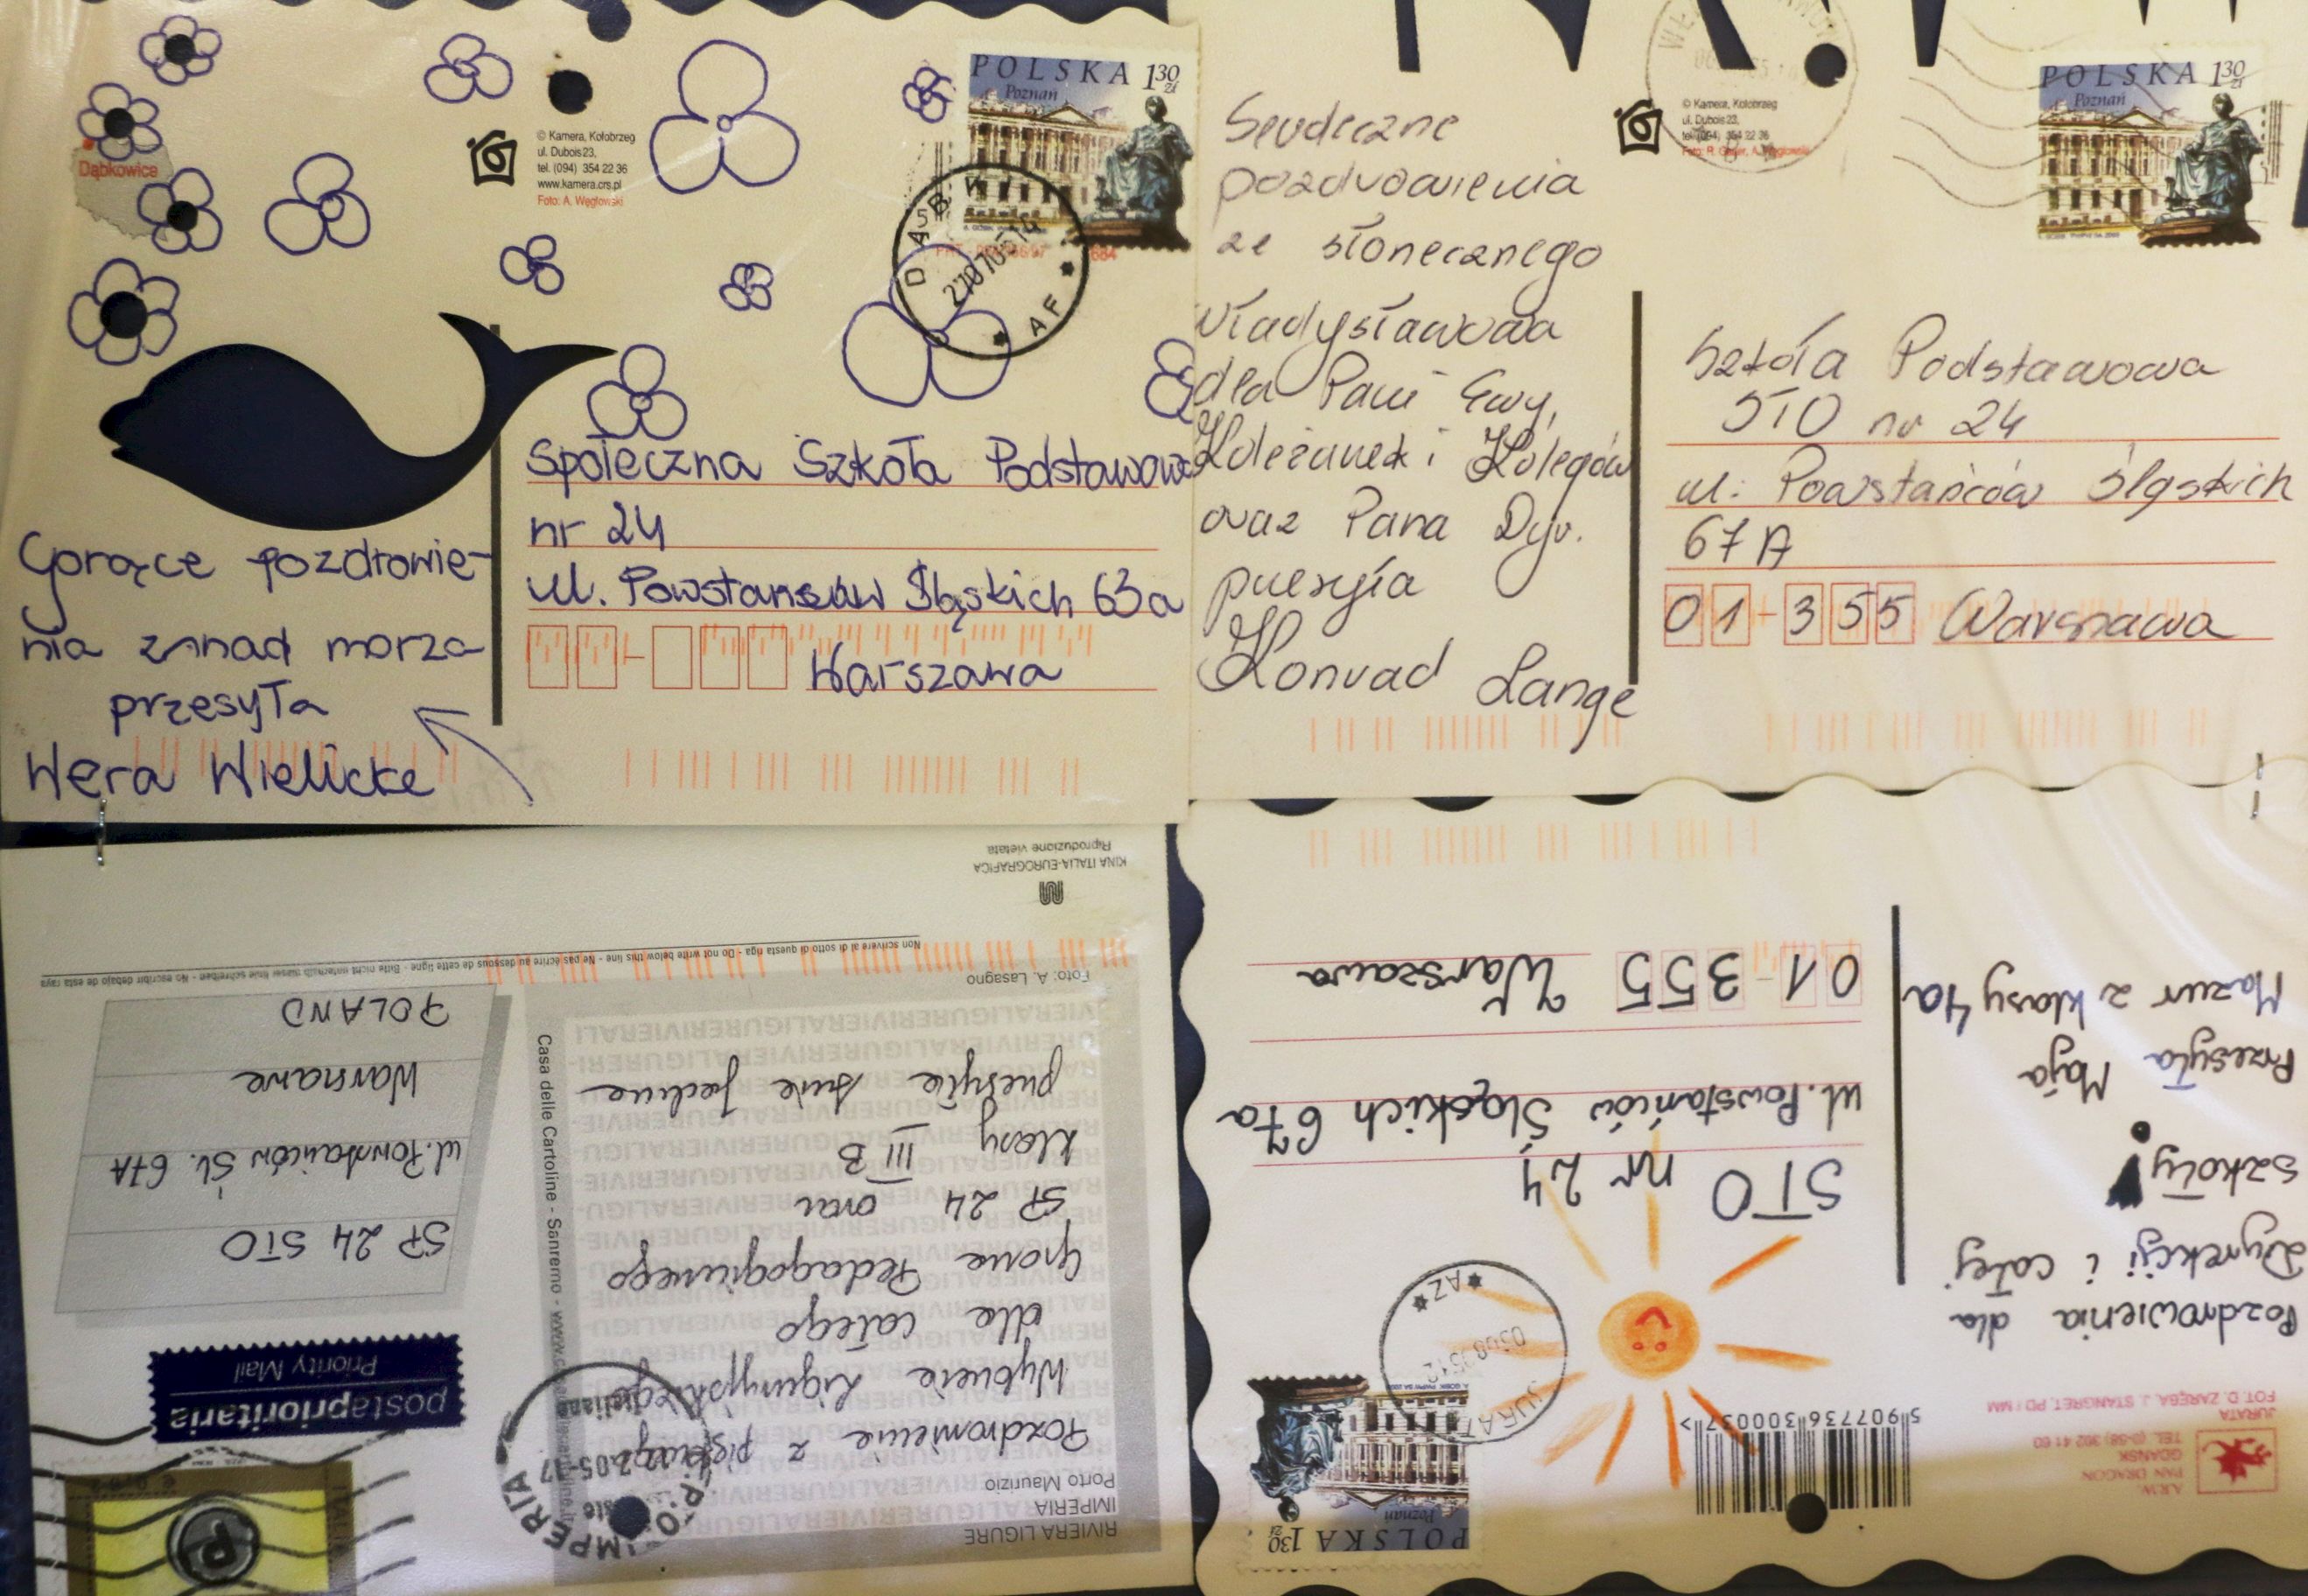 Dąbkowice
© Kamera, Kołobrzeg
ul. Dubois 23,
tel. (094) 354 22 36
www.kamera.crs.pl
Foto: A. Węgłowski
POLSKA 1 30 zł
Poznań
AF
Gorące pozdrowie-
nia znad morza
przesyła
Wera Wielicka
Społeczna Szkoła Podstawowa
nr 24
ul. Powstańców Śląskich 63a
Warszawa
© Kamera, Kołobrzeg
ul. Dubois 23,
tel. (094) 354 22 36
POLSKA 1 30 zł
Poznań
Serdeczne
pozdrowienia
ze słonecznego
Władysławowa
dla Pani Ewy,
Koleżanek i Kolegów
oraz Pana Dyr.
przesyła
Konrad Lange
Szkoła Podstawowa
STO nr 24
ul. Powstańców Śląskich
67A
01-355 Warszawa
RIVIERA LIGURE
IMPERIA
Porto Maurizio
Pozdrowienia z pięknego
Wybrzeża Liguryjskiego
dla całego
Grona Pedagogicznego
SP 24 oraz
klasy III B
przesyła
Foto: A. Lasagno
Casa delle Cartoline - Sanremo
postaprioritaria
Priority Mail
P
IMPERIA
SP 24 STO
ul. Powstańców Śl. 67A
Warszawa
POLAND
Non scrivere al di sotto di questa riga - Do not write below this line - Ne pas écrire au dessous de cette ligne - Bitte nicht unterhalb dieser linie schreiben - No escribir debajo de esta raya
KINA ITALIA-EUROGRAFICA
Riproduzione vietata
A.R.W.
PAN DRAGON
GDAŃSK
TEL. (0-58) 302 41 60
JURATA
FOT. D. ZARĘBA, J. STANGRET, PD / MM
5 907736 300037 >
POLSKA 1 30 zł
Poznań
JURATA
AZ
Pozdrowienia dla
Dyrekcji i całej
szkoły!
Przesyła Maja
Mazur z klasy 4a
STO nr 24
ul. Powstańców Śląskich 67a
01-355 Warszawa